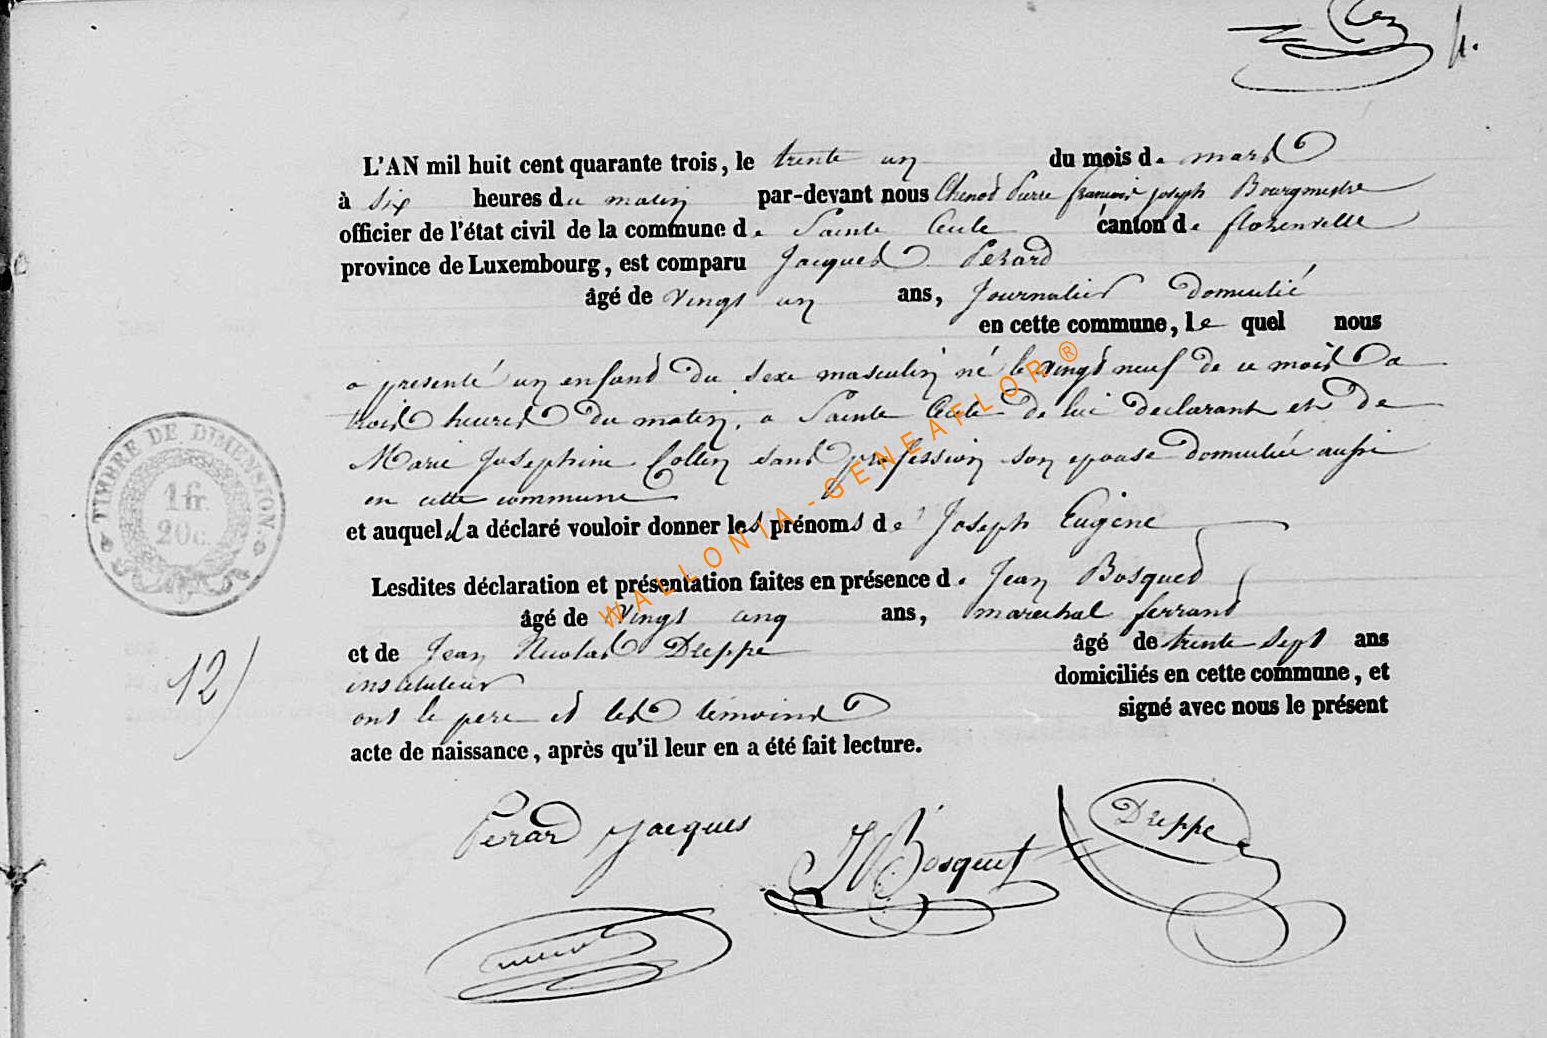 4.
L'AN mil huit cent quarante trois, le trente un du mois de mars
à six heures du matin par-devant nous Chenot Pierre françois joseph Bourgmestre
officier de l'état civil de la commune de Sainte Cecile canton de florenville
province de Luxembourg, est comparu Jacques Perard
âgé de vingt un ans, Journalier domicilié
en cette commune, le quel nous
a presenté un enfant du sexe masculin né le vingt neuf de ce mois a
trois heures du matin, a Sainte Cecile de lui declarant et de
Marie Josephine Collin sans profession son epouse domiciliée aussi
en cette commune
et auquel il a déclaré vouloir donner les prénoms de Joseph Eugène
Lesdites déclaration et présentation faites en présence de Jean Bosquet
âgé de vingt cinq ans, marechal ferrant
et de Jean Nicolas Dreppe âgé de trente sept ans
instituteur domiciliés en cette commune, et
ont le pere et les témoins signé avec nous le présent
acte de naissance, après qu'il leur en a été fait lecture.
TIMBRE DE DIMENSION.
1 fr.
20 c.
12)
Perard Jacques
J Bosquet
Dreppe
WALLONIA-GENEAFLOR®